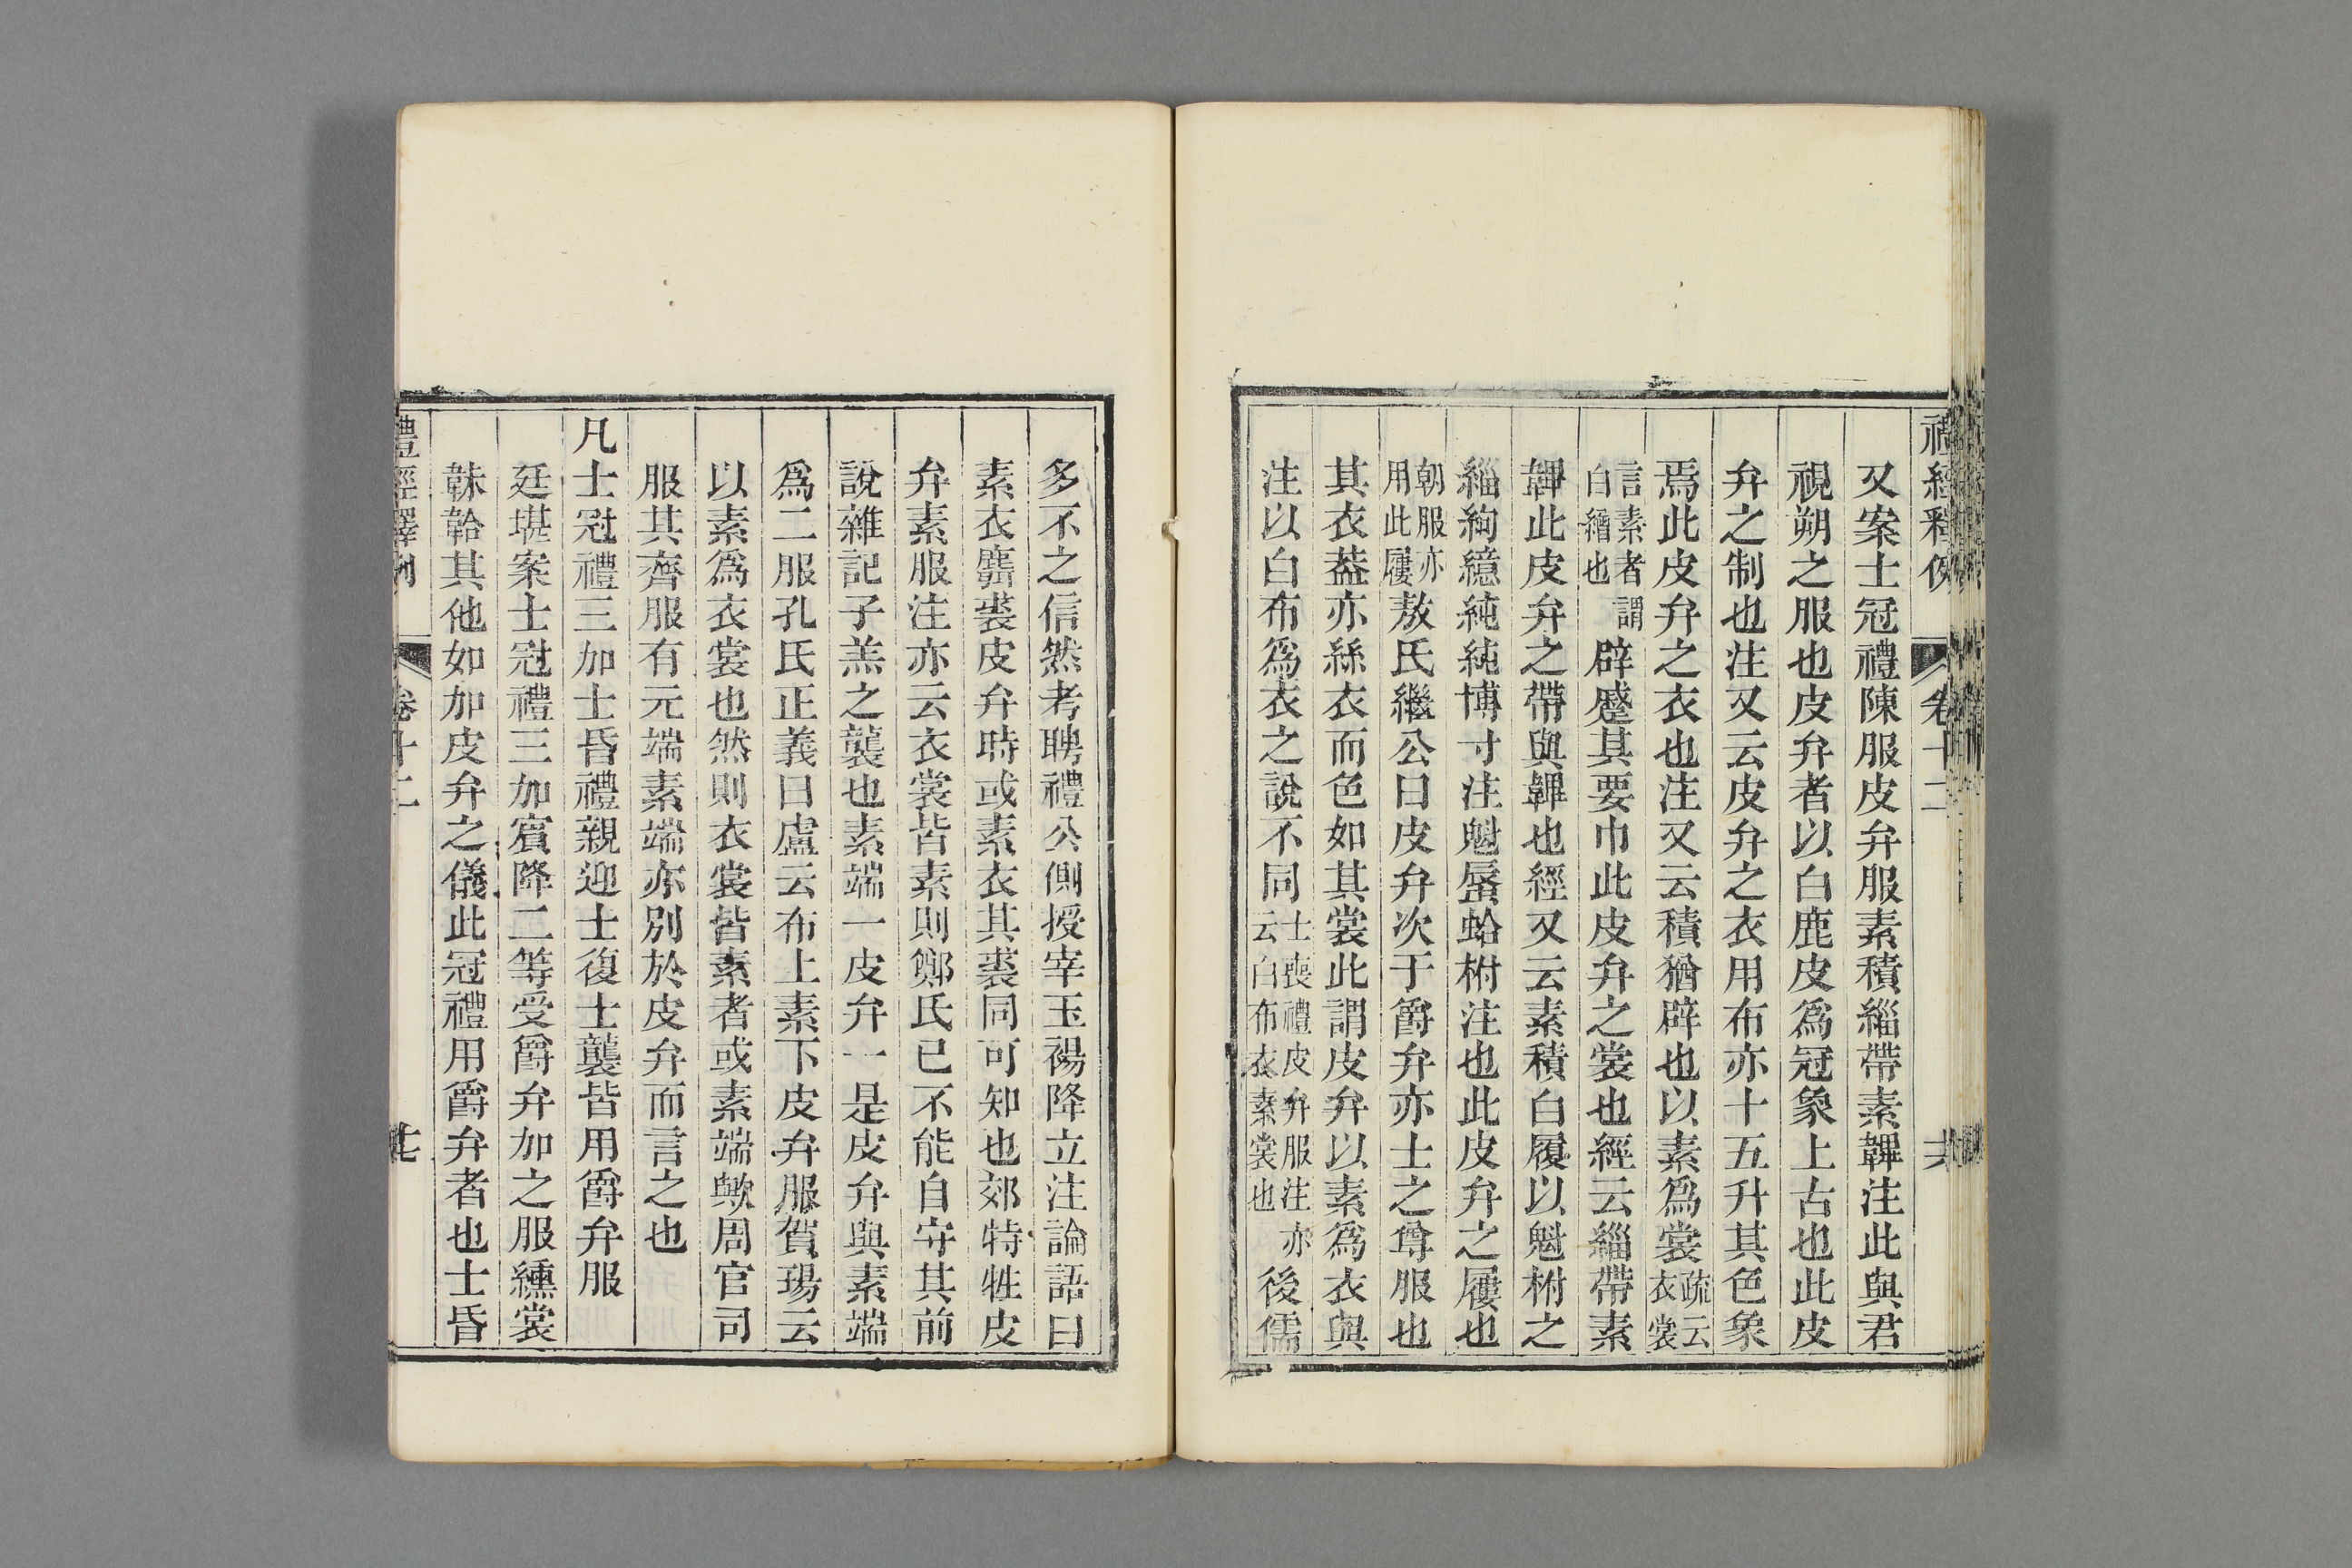 禮經釋例 卷十二
又案士冠禮陳服皮弁服素積緇帶素韠注此與君
視朔之服也皮弁者以白鹿皮爲冠象上古也此皮
弁之制也注又云皮弁之衣用布亦十五升其色象
焉此皮弁之衣也注又云積猶辟也以素爲裳疏云衣裳
言素者謂白繒也辟蹙其要巾此皮弁之裳也經云緇帶素
韠此皮弁之帶與韠也經又云素積白屨以魁柎之
緇絇繶純純博寸注魁蜃蛤柎注也此皮弁之屨也
朝服亦用此屨敖氏繼公曰皮弁次于爵弁亦士之尊服也
其衣葢亦絲衣而色如其裳此謂皮弁以素爲衣與
注以白布爲衣之說不同士喪禮皮弁服注亦云白布衣素裳也後儒
多不之信然考聘禮公側授宰玉裼降立注論語曰
素衣麛裘皮弁時或素衣其裘同可知也郊特牲皮
弁素服注亦云衣裳皆素則鄭氏已不能自守其前
說雜記子羔之襲也素端一皮弁一是皮弁與素端
爲二服孔氏正義曰盧云布上素下皮弁服賀瑒云
以素爲衣裳也然則衣裳皆素者或素端歟周官司
服其齊服有元端素端亦別於皮弁而言之也
凡士冠禮三加士昏禮親迎士復士襲皆用爵弁服
廷堪案士冠禮三加賓降二等受爵弁加之服纁裳
韎韐其他如加皮弁之儀此冠禮用爵弁者也士昏
禮經釋例 卷十二 七